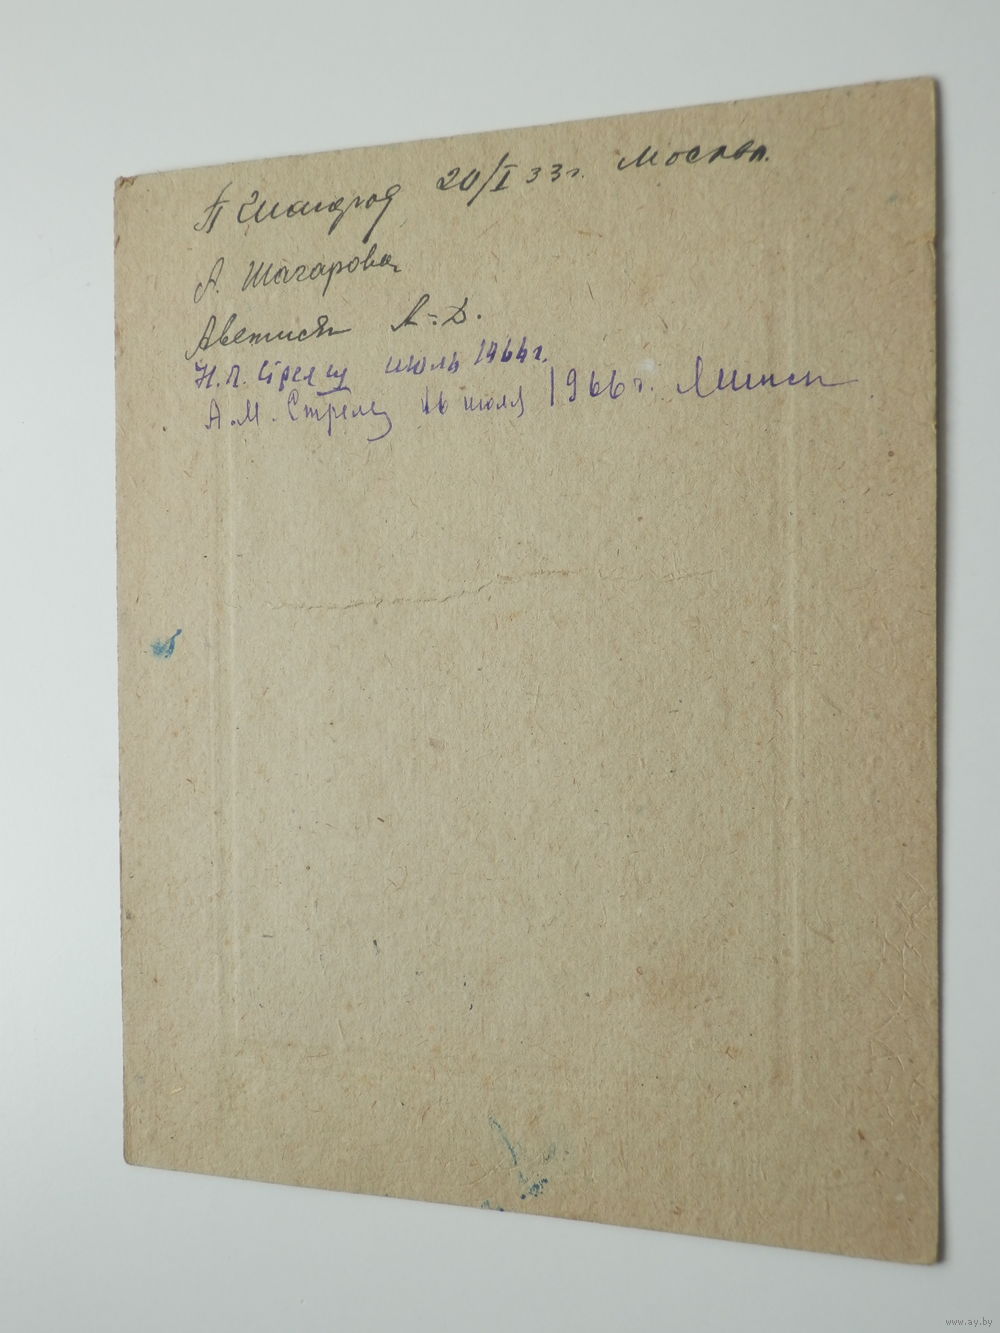 20/I 33г. Москва.
А. Шагарова
Аветисян А. Д.
Н. П. Стрелец июль 1966г.
А. М. Стрелец 16 июля 1966г. Минск
www.ay.by